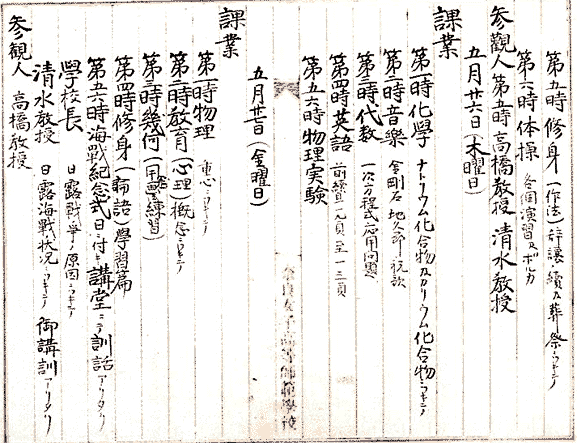 第五時 修身（作法）辞譲ノ續及葬祭ニツキテ
第六時 体操 各個演習及ポルカ
参觀人 第五時 高橋教授 清水教授
五月廿六日（木曜日）
課業
第一時 化學 ナトリウム化合物及カリウム化合物ニツキテ
第二時 音樂 金剛石 地久節 祝歌
第三時 代数 一次方程式応用問題
第四時 英語 前續 九頁至一三頁
第五六時 物理実験
奈良女子高等師範學校
五月廿七日（金曜日）
課業
第一時 物理 重心ニツキテ
第二時 教育（心理）概念ニツキテ
第三時 幾何（用器画練習）
第四時 修身（論語）學習篇
第五六時 海戰紀念式日ニ付キ講堂ニテ訓話アリタリ
學校長 日露戰爭ノ原因ニツキテ
清水教授 日露海戰ノ状况ニツキテ 御講訓アリタリ
参觀人 高橋教授